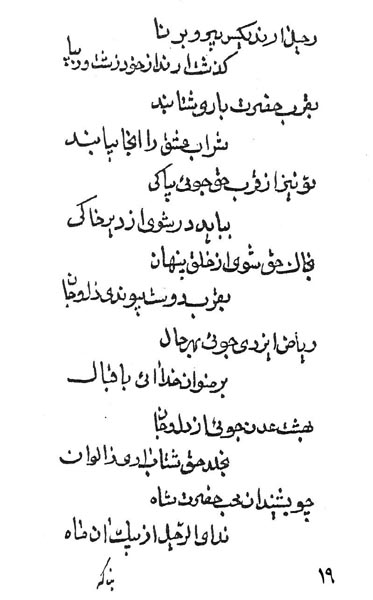 رحیل ارند یکسر پیر و برنا
کذشت ارند از خود زشت و زیبا
بقرب حضرت شتابند
شراب عشق را انجا بیابند
تو نیز از قرب حق جوئی پاکی
بباید در شوی از دیر خاکی
حق شوی از خلق پنهان
بقرب دوست پیوندی دل و جان
ریاض ایزدی جوئی بهر حال
برضوان خدائی باقبال
بهشت عدن جوئی از دل و جان
بخلد حق شتاب اری ز الوان
چو بشنید ان محب حضرت شاه
ندای الرحیل از پیک ان ماه
١٩